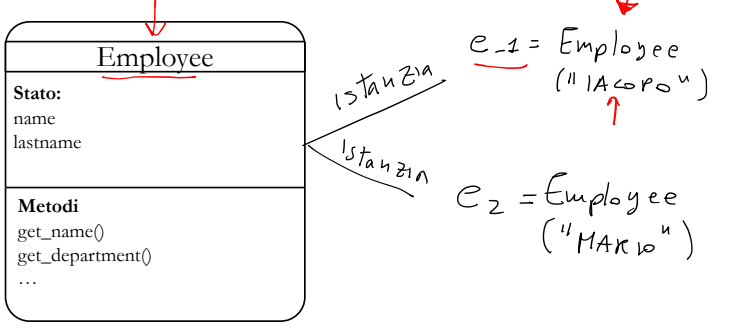 Employee
Stato:
name
lastname
Metodi
get_name()
get_department()
...
Istanzia
Istanzia
e_1 = Employee
("IACOPO")
e_2 = Employee
("MARIO")